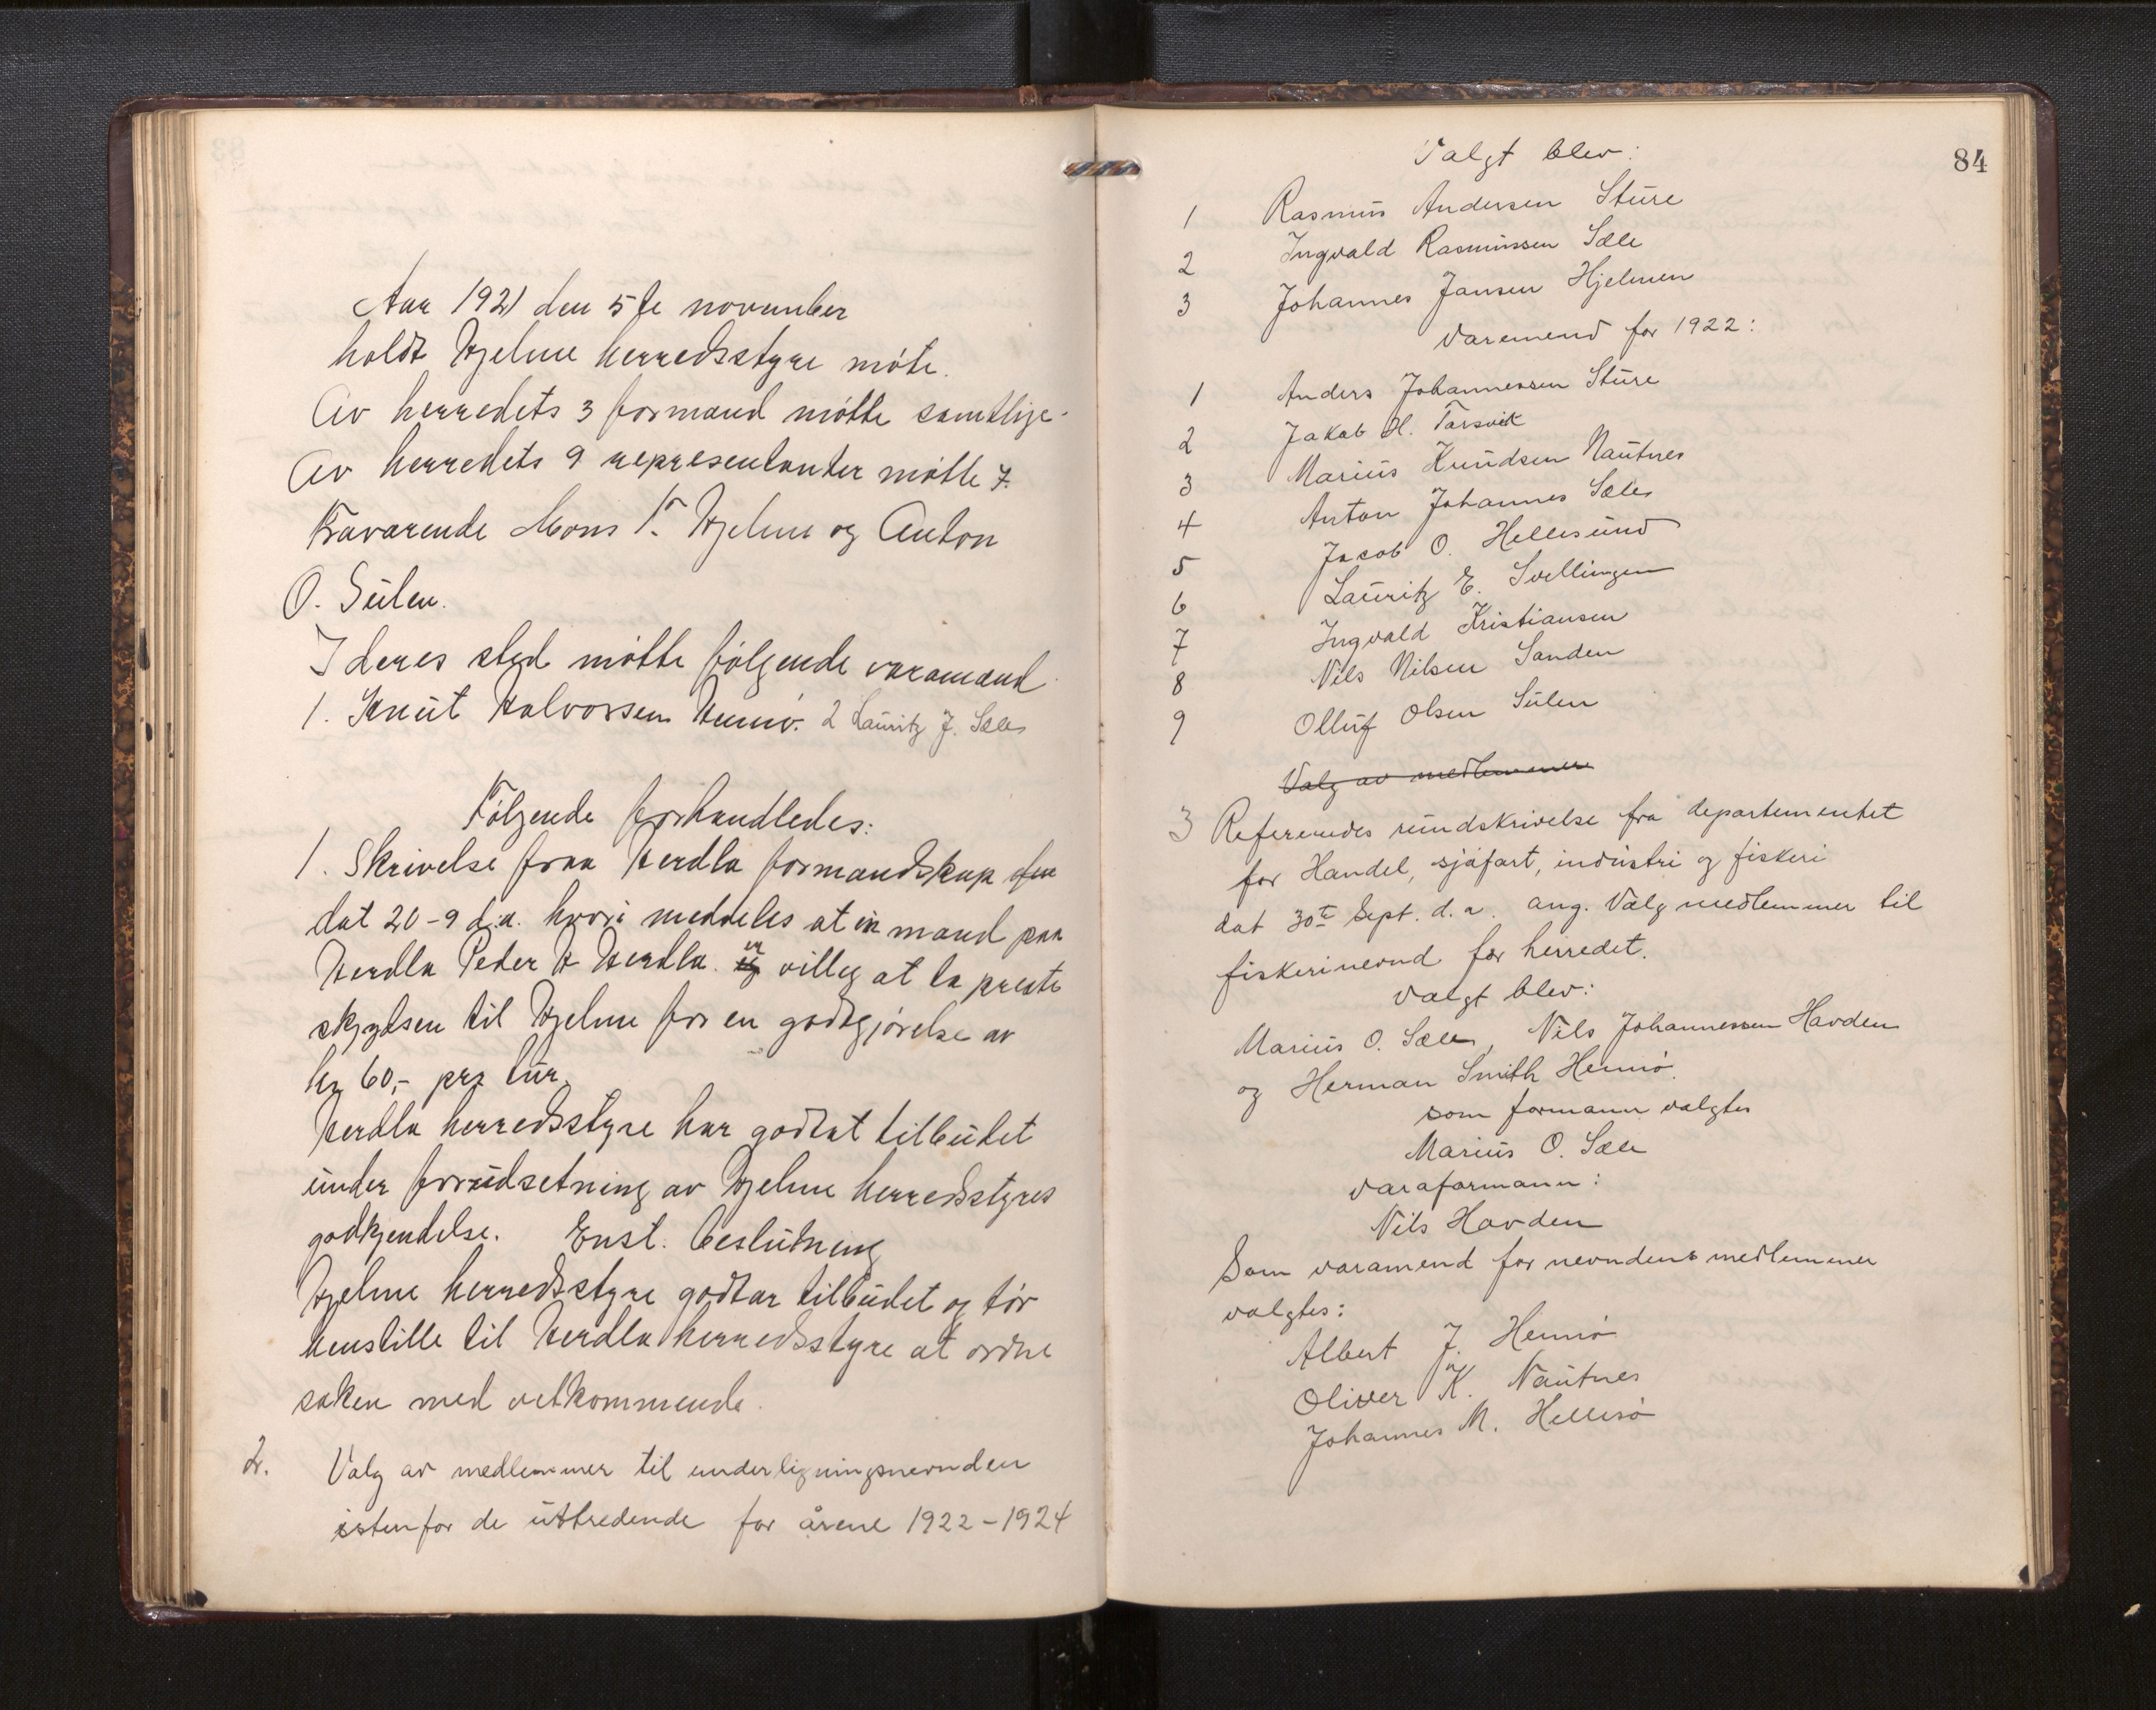 Aar 1921 den 5te november
holdt Hjelme herredsstyre møte.
Av herredets 3 formænd møtte samtlige.
Av herredets 9 representanter møtte 7.
Fraværende Mons F. Hjelme og Anton
O. Sulen.
I deres sted møtte følgende varamænd
1. Knut Halvorsen Hennø. 2 Lauritz J. Sæle
Følgende forhandledes:
1. Skrivelse fraa Herdla formandskap
dat 20-9 d.a. hvori meddeles at en mand paa
Herdla Peder H Herdla er villig at ta preste
skydsen til Hjelme for en godtgjørelse av
kr 60,- prs tur.
Herdla herredsstyre har godtat tilbudet
under forudsetning av Hjelme herredsstyres
godkjendelse. Enst. beslutning
Hjelme herredsstyre godtar tilbudet og tør
henstille til Herdla herredsstyre at ordne
saken med vedkommende.
2. Valg av medlemmer til underligningsnevnden
istenfor de uttredende for årene 1922-1924
84
Valgt blev:
1 Rasmus Andersen Sture
2 Ingvald Rasmussen Sæle
3 Johannes Jansen Hjelmen
Varemend for 1922:
1 Anders Johannessen Sture
2 Jakob H. Tarsvik
3 Marius Knudsen Nautnes
4 Anton Johannes Sæle
5 Jacob O. Hellesund
6 Lauritz E. Svellingen
7 Ingvald Kristiansen
8 Nils Nilsen Sanden
9 Olluf Olsen Sulen
Valg av medlemmer
3 Refereredes rundskrivelse fra departementet
for Handel, sjøfart, industri og fiskeri
dat 30te Sept. d.a. ang. Valg medlemmer til
fiskerinevnd for herredet.
Valgt blev:
Marius O. Sæle, Nils Johannessen Havden
og Herman Smith Hennø.
som formann valgtes
Marius O. Sæle
Varaformann:
Nils Havden
Som varamend for nevndens medlemmer
valgtes:
Albert J. Hennø
Oliver K. Nautnes
Johannes M. Hellesø